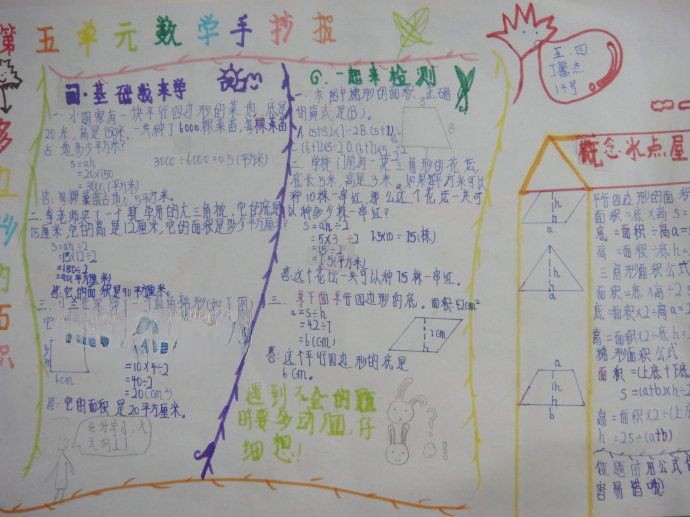 第五单元数学手抄报
多边形的面积
五.四
14号
四·基础我来学
一、小明家有一块平行四边形的菜地,底是
20米,高是150米,一共种了6000棵菜苗,每棵菜苗
占地多少平方米?
S=ah
=20×150
=3000(平方米)
3000÷6000=0.5(平方米)
答:每棵菜苗占地0.5平方米。
二、李老师买了一个教学用的大三角板,它的底是
15厘米,它的高是12厘米,它的面积是多少平方厘米?
S=ah÷2
=15×12÷2
=180÷2
=90(平方厘米)
答:它的面积是90平方厘米。
6cm
=10×4÷2
=40÷2
=20(cm²)
答:它的面积是20平方厘米。
好好学习,天
天向上!
6.一起来检测
一、求图中梯形的面积,正确
的算式是(B)。
二、学校门前有一块三角形的花坛,
底长5米,高是3米。如果每平方米可以
种10株一串红,那么这个花坛一共可
以种多少株一串红?
S=ah÷2
=5×3÷2
=15÷2
=7.5(平方米)
7.5×10=75(株)
答:这个花坛一共可以种75株一串红。
三、求下面平行四边形的底。面积42cm²
a=S÷h
=42÷7
=6(cm)
7cm
答:这个平行四边形的底是
6cm。
遇到不会的题
时要多动脑,仔
细想!
概念·冰点屋
平行四边形的面积
面积=底×高 S=
底=面积÷高 a=S
高=面积÷底 h=
三角形面积公式
面积=底×高÷2 S
底=面积×2÷高 a=2
高=面积×2÷底 h=
梯形面积公式
面积=(上底+下底
S=(a+b)×h÷2
高=面积×2÷(上
h=2S÷(a+b)
做题时用公式
容易错哦!
h
a
h
a
a
h
b